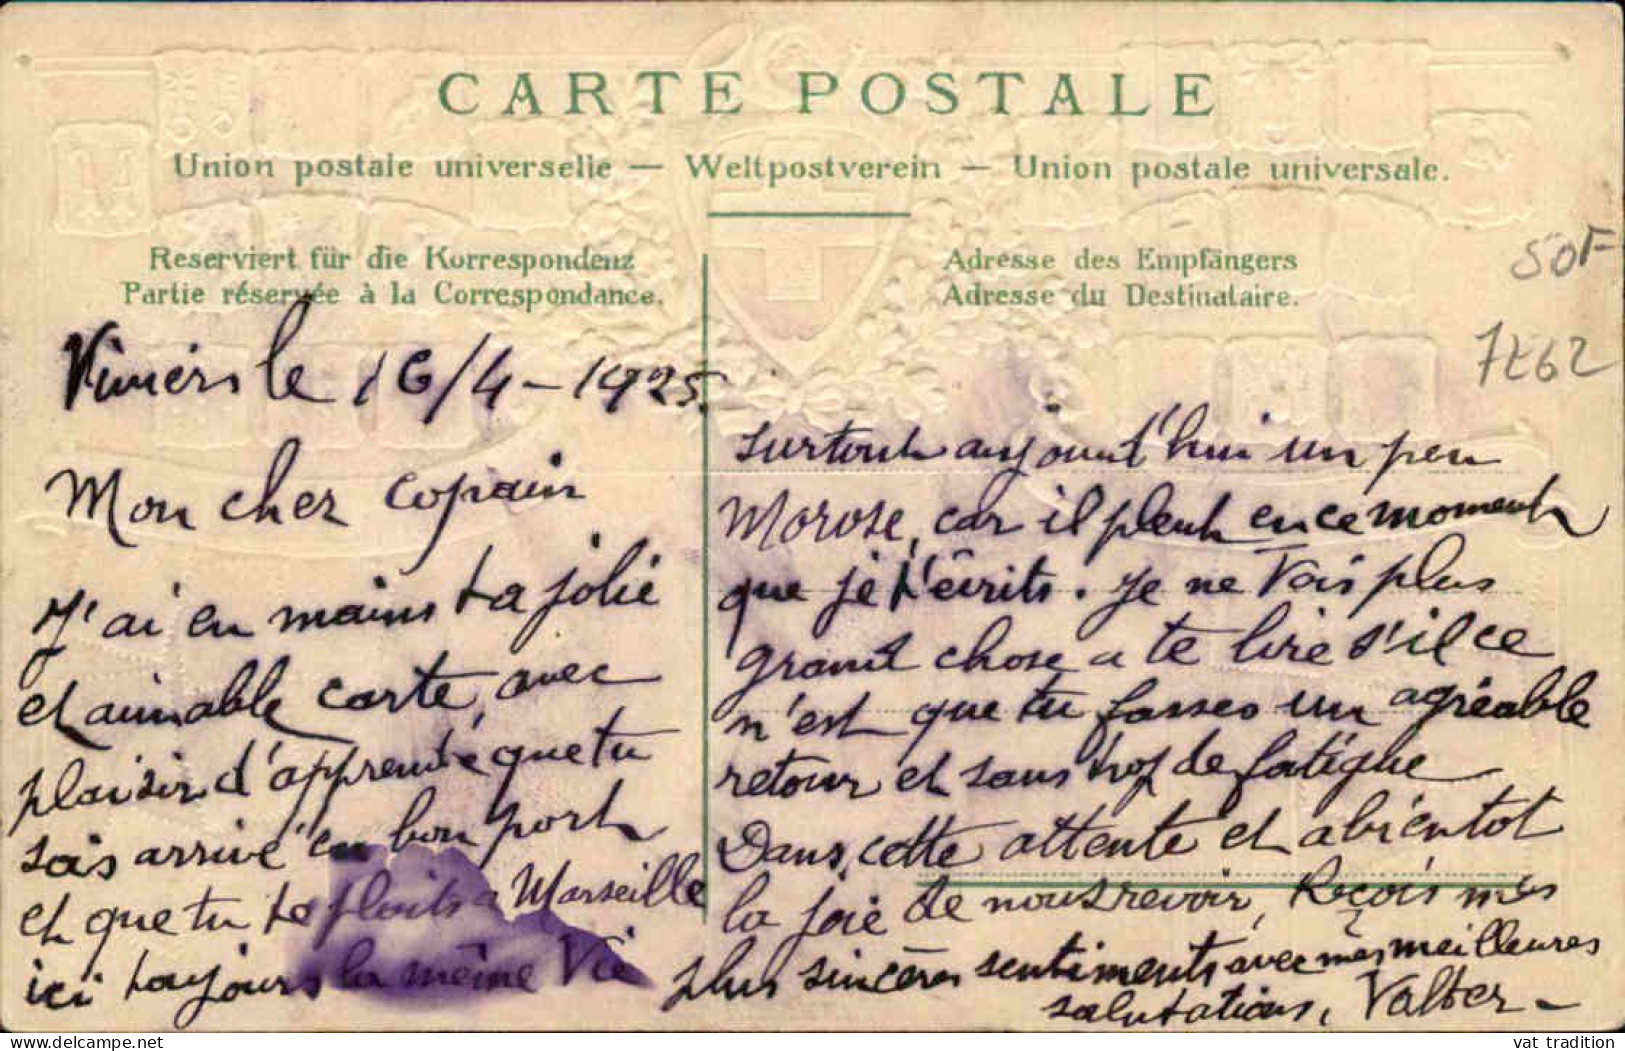 CARTE POSTALE
Union postale universelle — Weltpostverein — Union postale universale.
Reserviert für die Korrespondenz
Partie réservée à la Correspondance.
Adresse des Empfängers
Adresse du Destinataire.
50F
7262
le 16/4-1925.
Mon cher copain
J'ai en mains ta jolie
et aimable carte, avec
plaisir d'apprendre que tu
sois arrivé en bon port
et que tu te plaits a Marseille
ici toujours la même Vie
surtout aujourd'hui un peu
Morose, car il pleut en ce moment
que je t'évrits. Je ne Vois plus
grand chose a te lire s'il ce
n'est que tu fasses un agréable
retour et sans trop de fatigue
Dans cette attente et abientot
la joie de nous revoir, Reçois mes
plus sincères sentiments avec mes meilleures
salutations, Valter-
vat tradition